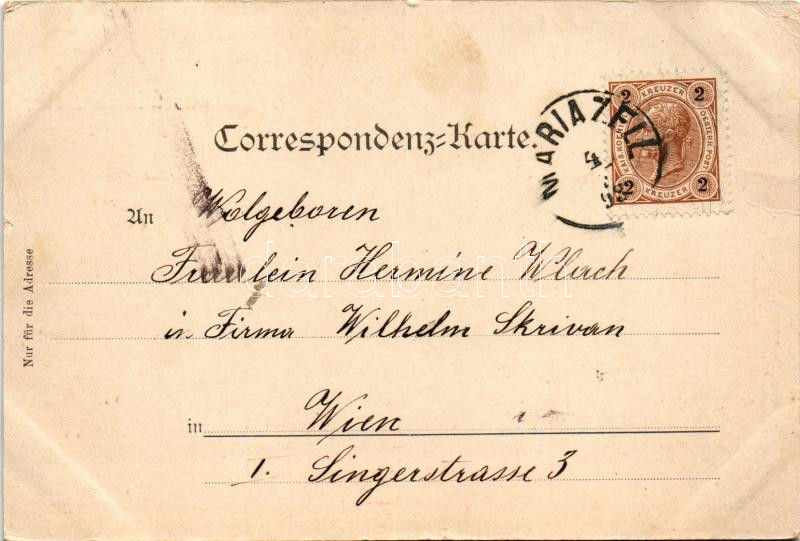 Correspondenz-Karte.
2 KREUZER 2
KAIS. KOEN. OESTERR. POST.
2 KREUZER 2
MARIAZELL
4
98
An Wolgeboren
Fräulein Hermine Wlach
in Firma Wilhelm Skrivan
in Wien
I. Singerstrasse 3
Nur für die Adresse
darabanth